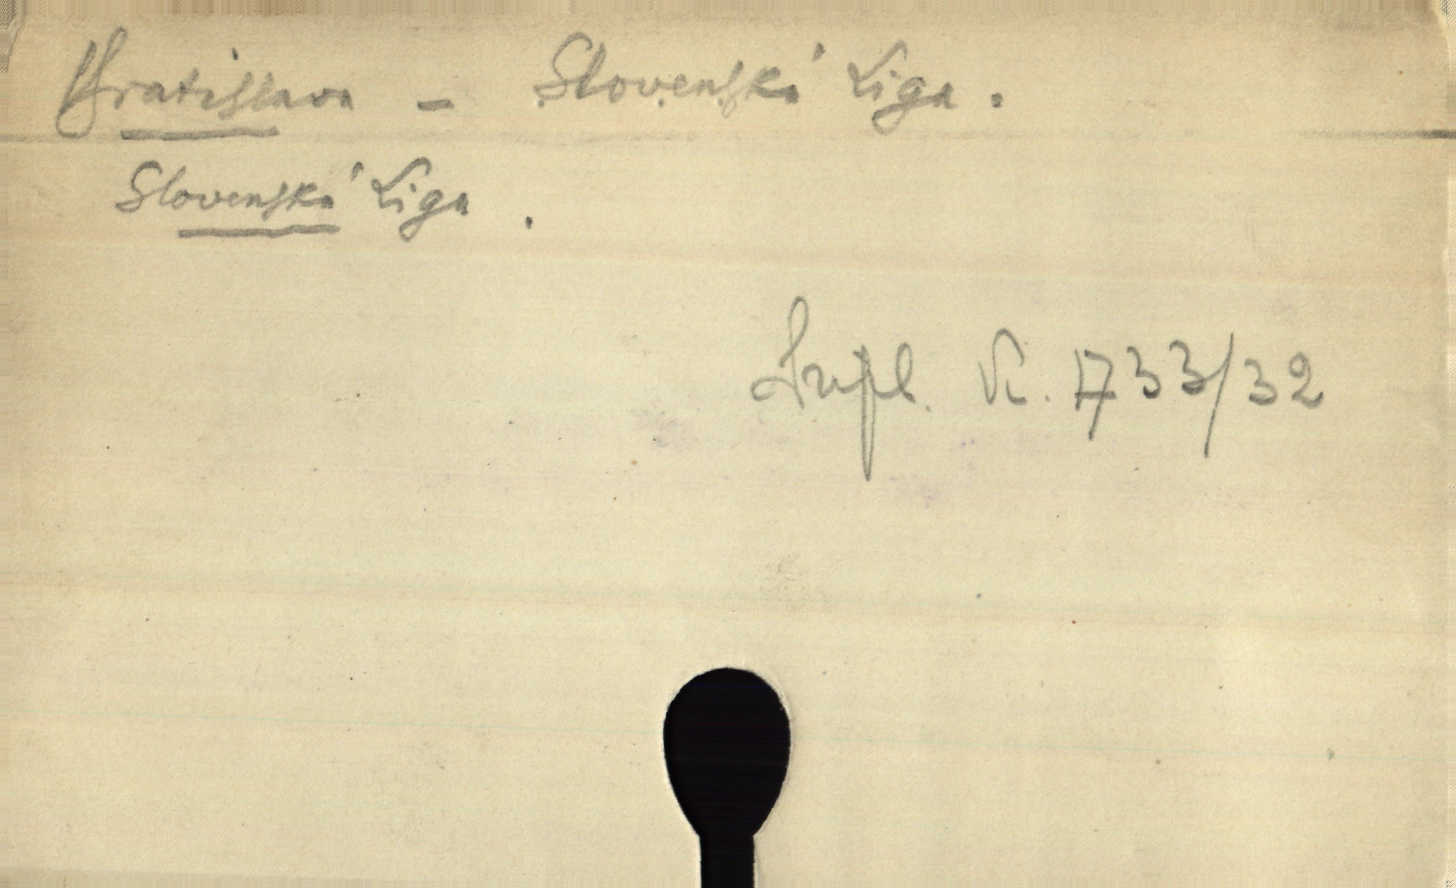 Bratislava – Slovenská Liga.
Slovenská Liga.
Supl. K. 1733/32